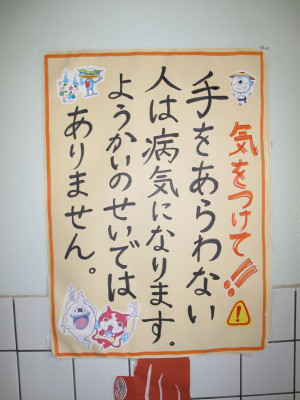 気をつけて!!
手をあらわない
人は病気になります.
ようかいのせいでは
ありません。